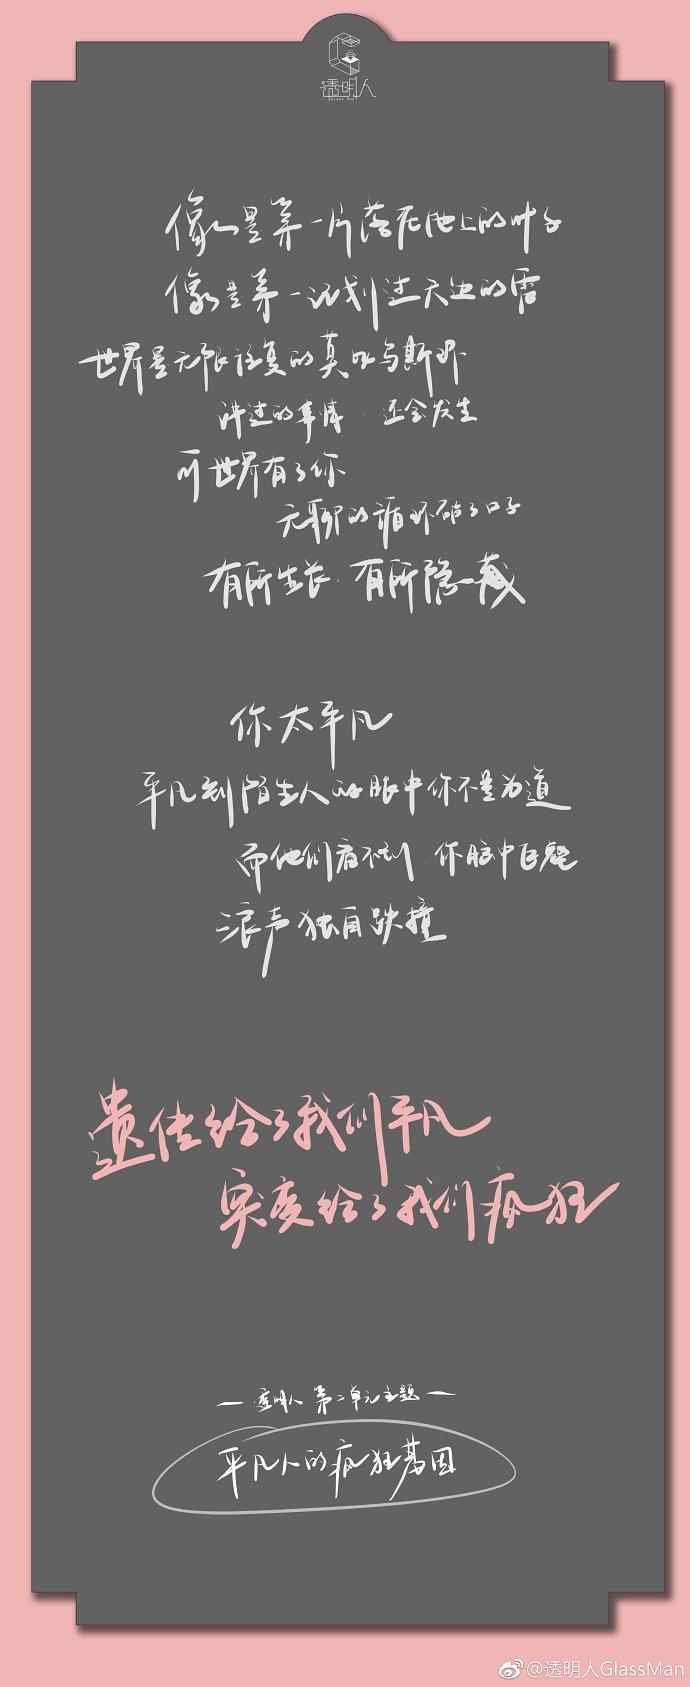 透明人
像是第一片落在地上的叶子
像是第一次划过天边的雷
世界是无限往复的莫比乌斯环
讲过的事情 还会发生
可世界有了你
无聊的循环破了口子
有所生长 有所隐藏
你太平凡
平凡到陌生人的眼中你不足为道
而他们看不到 你脑中正凭
浪声独自跌撞
遗传给了我们平凡
突变给了我们疯狂
— 透明人 第二单元主题 —
平凡人的疯狂基因
@透明人GlassMan